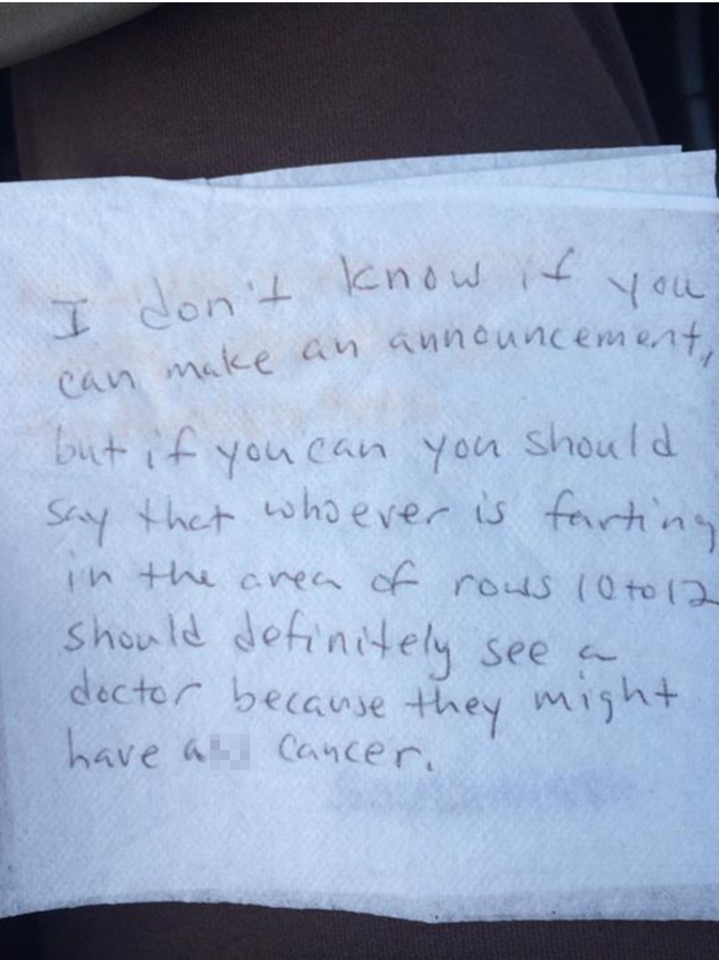 I don't know if you
can make an announcement,
but if you can you should
say that whoever is farting
in the area of rows 10 to 12
should definitely see a
doctor because they might
have a cancer.